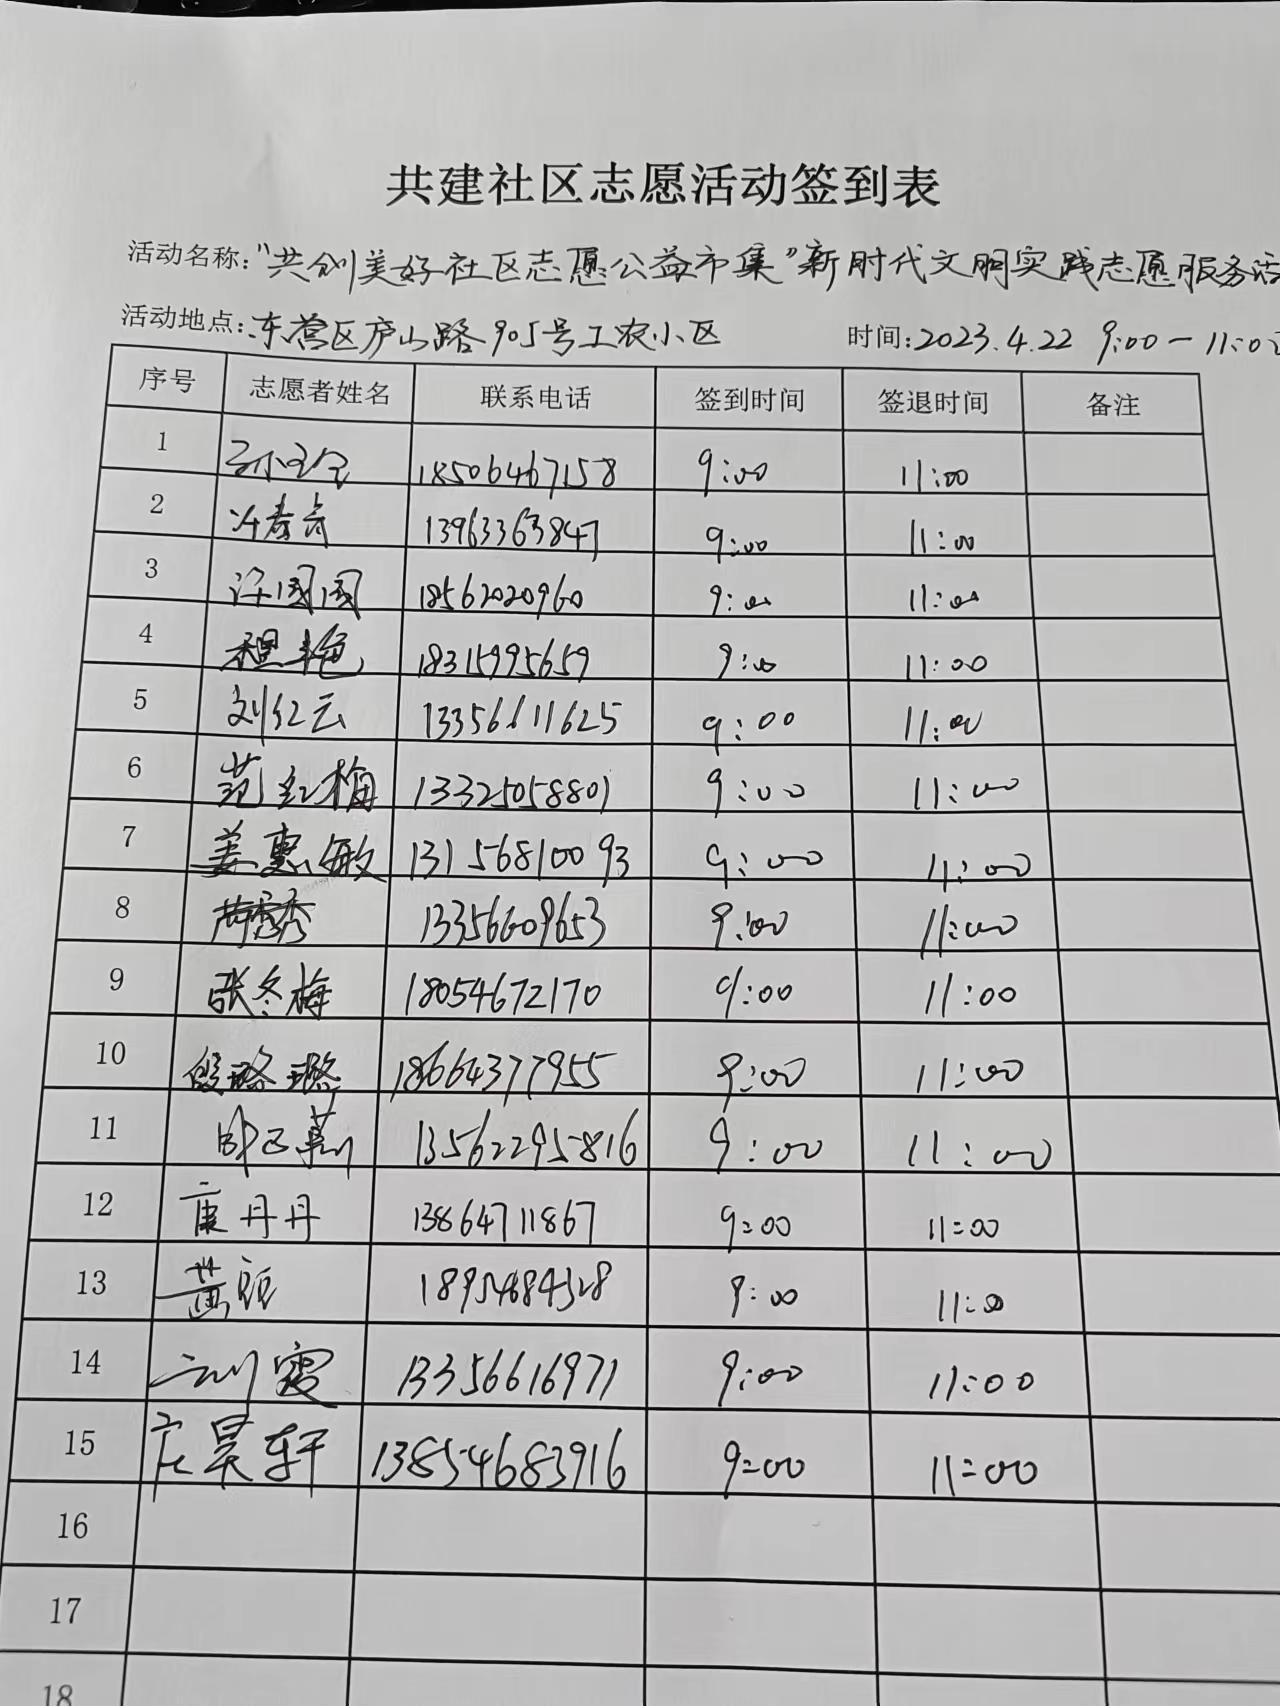 共建社区志愿活动签到表
活动名称："共创美好社区志愿公益市集"新时代文明实践志愿服务活
活动地点：东营区庐山路905号工农小区 时间：2023.4.22 9:00—11:00
序号 志愿者姓名 联系电话 签到时间 签退时间 备注
1 18506467158 9:00 11:00
2 13963363847 9:00 11:00
3 许园园 18562020960 9:00 11:00
4 程艳 18315995659 9:00 11:00
5 刘红云 13356611625 9:00 11:00
6 范红梅 13325058801 9:00 11:00
7 姜惠敏 13156810093 9:00 11:00
8 13356609653 9:00 11:00
9 张冬梅 18054672170 9:00 11:00
10 段璐璐 18664377955 9:00 11:00
11 13562295816 9:00 11:00
12 康丹丹 13864711867 9:00 11:00
13 9:00 11:00
14 刘霞 13356616971 9:00 11:00
15 庄昊轩 13854683916 9:00 11:00
16
17
18